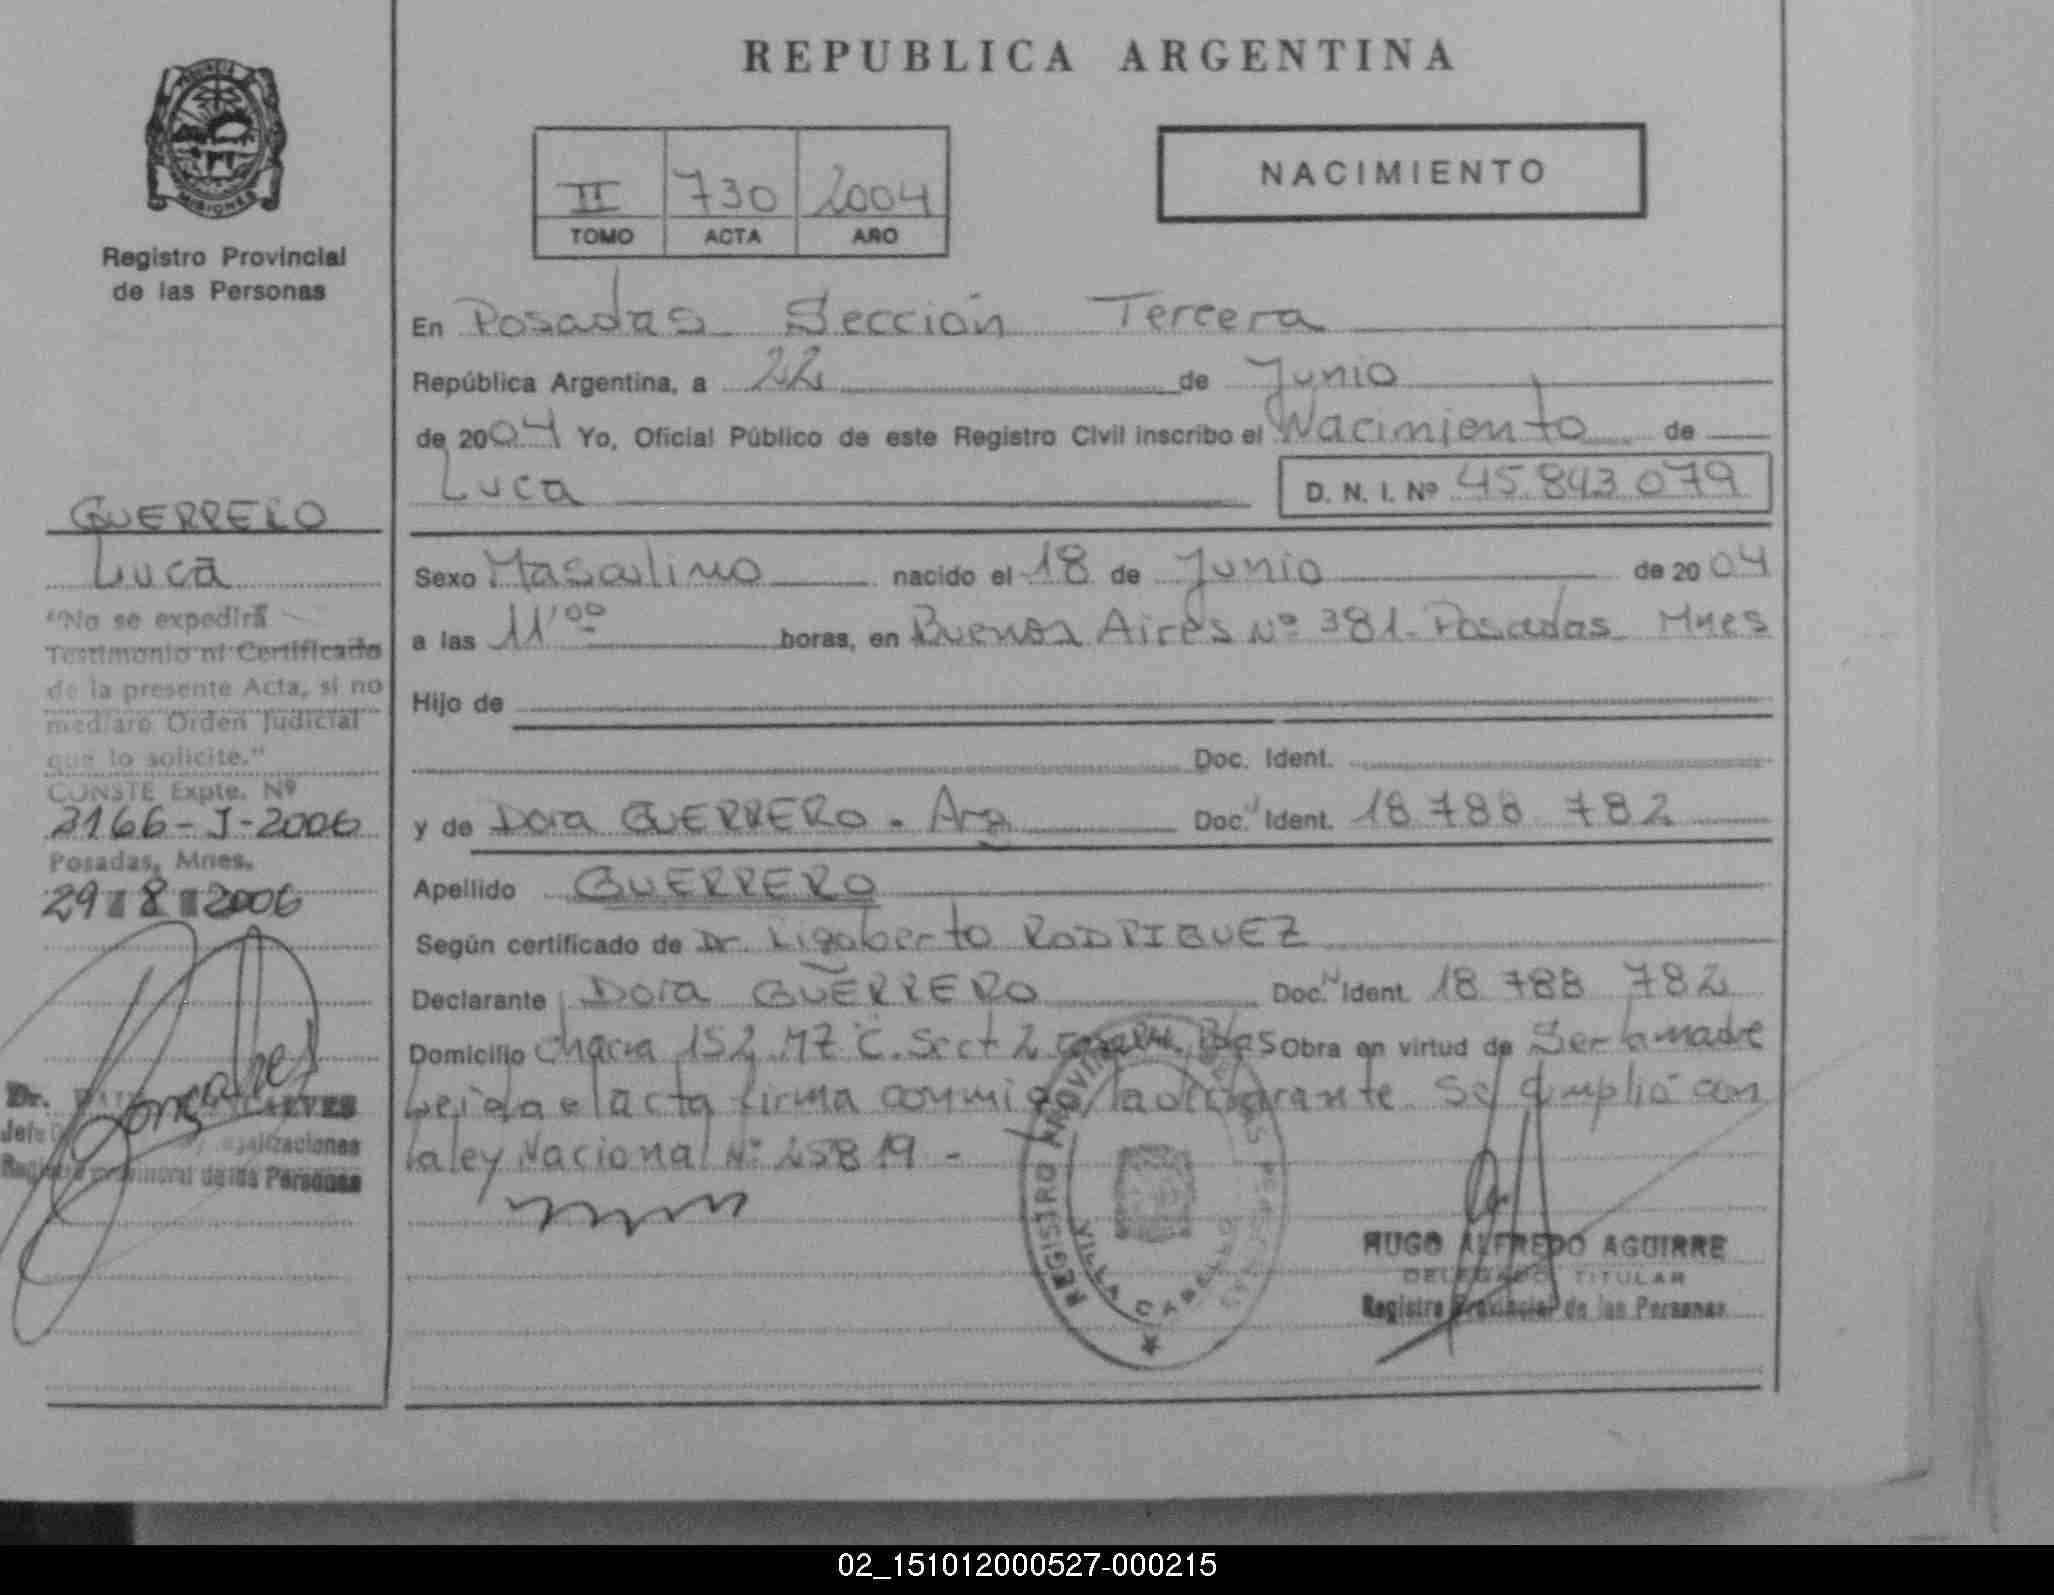 REPUBLICA ARGENTINA
PROVINCIA
MISIONES
Registro Provincial
de las Personas
II 730 2004
TOMO ACTA AÑO
NACIMIENTO
En Posadas Sección Tercera
República Argentina, a 22 de Junio
de 2004 Yo, Oficial Público de este Registro Civil inscribo el Nacimiento de
Luca D. N. I. Nº 45.843.079
Sexo Masculino nacido el 18 de Junio de 2004
a las 11'00 horas, en Buenos Aires Nº 381. Posadas Mnes
Hijo de
Doc. Ident.
y de Dora GUERRERO. Arg Doc. Ident. 18 788 782
Apellido GUERRERO
Según certificado de Dr. Rigoberto RODRIGUEZ
Declarante Dora GUERRERO Doc. Ident. 18 788 782
Domicilio Chacra 152 MZ C. Sect 2 Pdas Obra en virtud de Ser la madre
Leida el acta firma conmigo la declarante Se cumplió con
la ley Nacional Nº 25819 -
GUERRERO
Luca
"No se expedirá
Testimonio ni Certificado
de la presente Acta, si no
mediare Orden Judicial
que lo solicite."
CONSTE Expte. Nº
2166-J-2006
Posadas, Mnes.
29 8 2006
Dr.
Registro Provincial de las Personas
REGISTRO PROVINCIAL DE LAS PERSONAS
VILLA CABELLO
HUGO ALFREDO AGUIRRE
DELEGADO TITULAR
Registro Provincial de las Personas
02_151012000527-000215